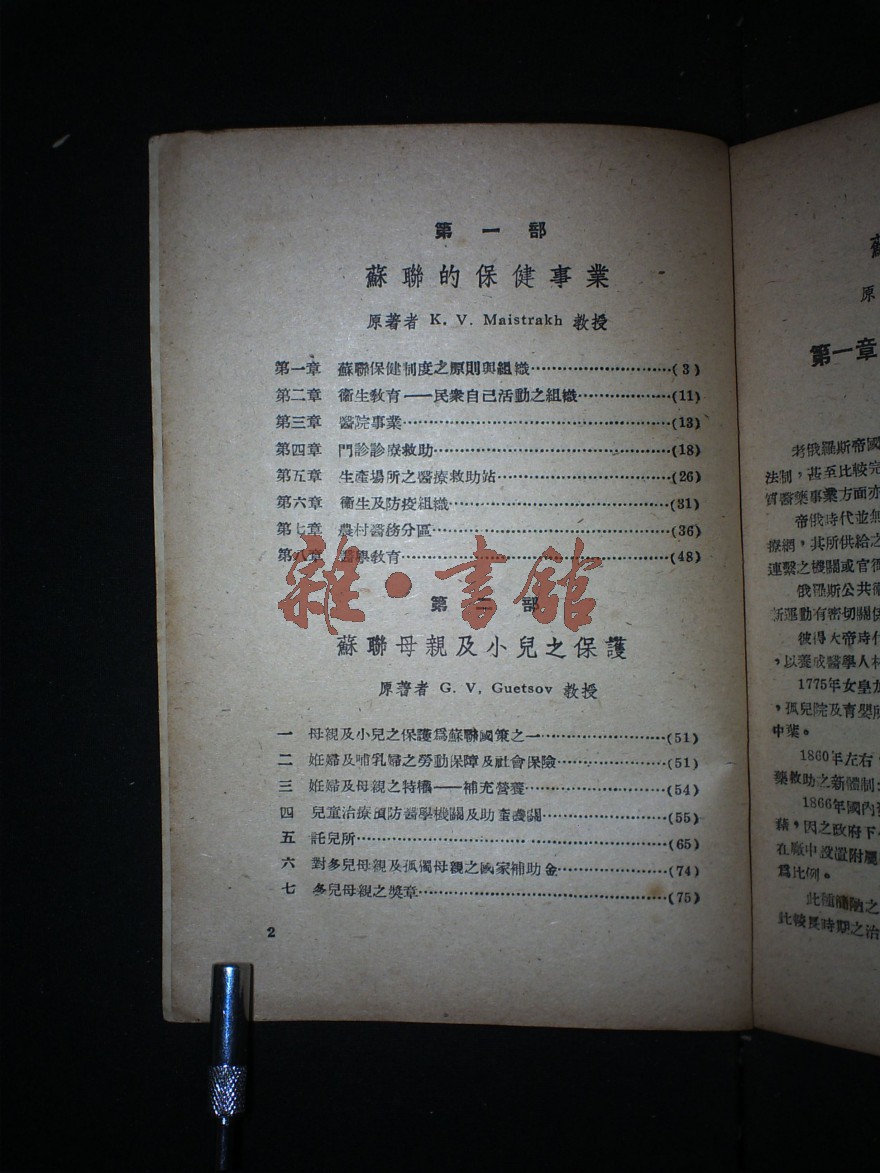 第一部
蘇聯的保健事業
原著者 K. V. Maistrakh 教授
第一章 蘇聯保健制度之原則與組織…………(3)
第二章 衞生敎育——民衆自己活動之組織…………(11)
第三章 醫院事業…………(13)
第四章 門診診療救助…………(18)
第五章 生產場所之醫療救助站…………(26)
第六章 衞生及防疫組織…………(31)
第七章 農村醫務分區…………(36)
第八章 醫學敎育…………(48)
雜·書館
第二部
蘇聯母親及小兒之保護
原著者 G. V. Guetsov 教授
一 母親及小兒之保護爲蘇聯國策之一…………(51)
二 妊婦及哺乳婦之勞動保障及社會保險…………(51)
三 妊婦及母親之特權——補充營養…………(54)
四 兒童治療預防醫學機關及助產機關…………(55)
五 託兒所…………(65)
六 對多兒母親及孤獨母親之國家補助金…………(74)
七 多兒母親之獎章…………(75)
2
原
第一章
老俄羅斯帝國
法制，甚至比較完
質醫藥事業方面亦
帝俄時代並無
療網，其所供給之
連繫之機關或官衙
俄羅斯公共衞
新運動有密切關係
彼得大帝時代
，以養成醫學人材
1775年女皇加
，孤兒院及育嬰所
中葉。
1860年左右，
藥救助之新體制
1866年國內
藉，因之政府下
在廠中設置附屬
爲比例。
此種
此較長時期之治